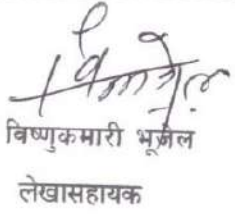 विष्णुकमारी भूजेल
लेखासहायक